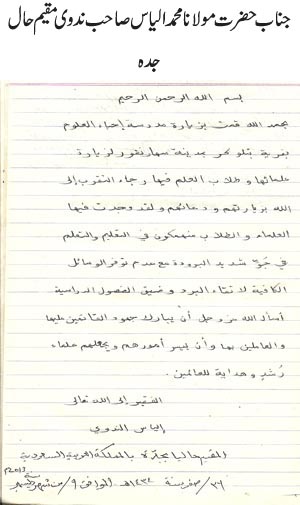 جناب حضرت مولانا محمد الیاس صاحب ندوی مقیم حال
جدہ
بسم الله الرحمن الرحيم
بحمد الله قمت بزيارة مدرسة إحياء العلوم
بقرية بتلو كر بمدينة سهارنفور لزيارة
علمائها وطلاب العلم فيها رجاء التقرب إلى
الله بزيارتهم ودعائهم ولقد وجدت فيها
العلماء والطلاب منهمكون في التعليم والتعلم
في جو شديد البرودة مع عدم توفر الوسائل
الكافية لاتقاء البرد وضيق الفصول الدراسية
أسأل الله عز وجل أن يبارك جهود القائمين عليها
والعاملين بها وأن ييسر أمورهم ويجعلهم علماء
رُشدٍ وهداية للعالمين.
الفقير إلى الله تعالى
إلياس الندوي
المقيم حاليا بجدة بالمملكة العربية السعودية
٢٦/ صفر سنة ١٤٣٤هـ الموافق ٩/ من شهر 2013م